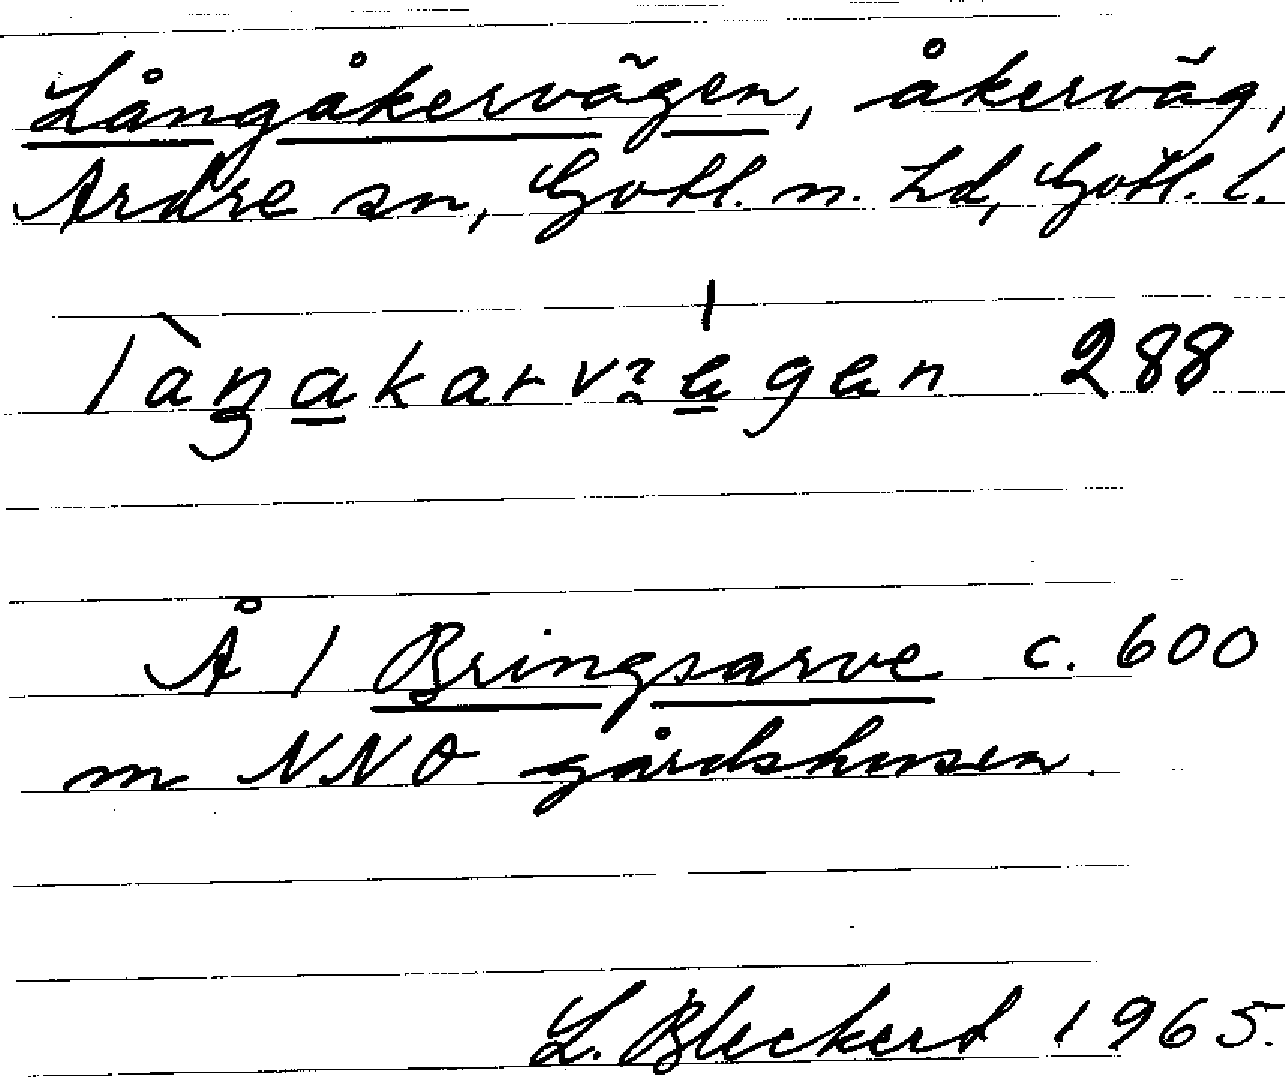 Långåkervägen, åkerväg,
Ardre sn, Gotl. n. hd, Gotl. l.
288
Å / Bringsarve c. 600
m NNO gårdshusen.
L. Bleckert 1965.